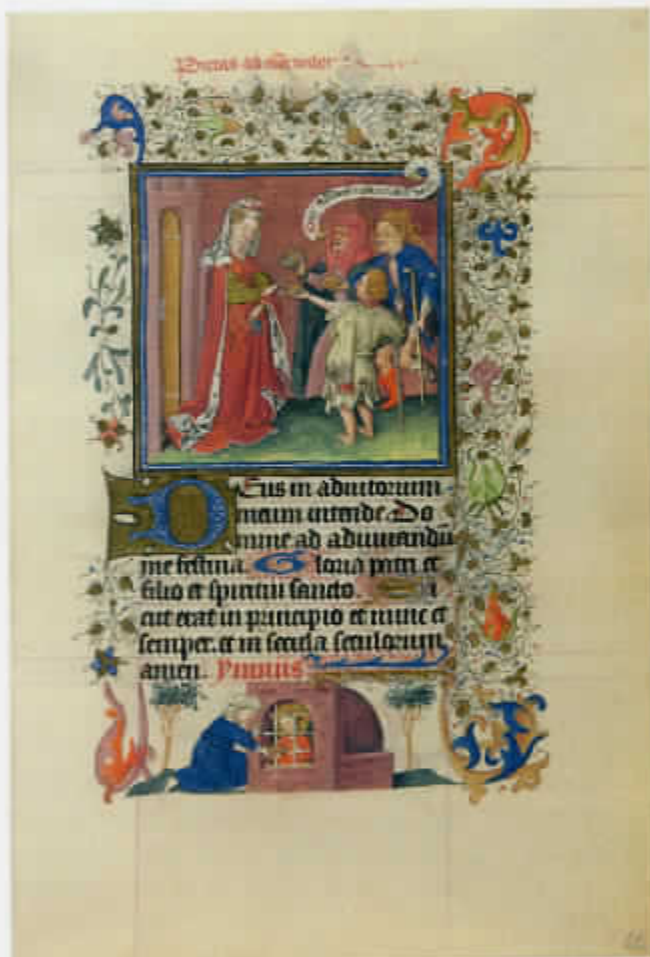 Deus in adiutorium
meum intende Do
mine ad adiuuandū
me festina. Gloria patri et
filio et spiritui sancto. Si
cut erat in principio et nunc et
semper. et in secula seculorum
amen. Ymnus